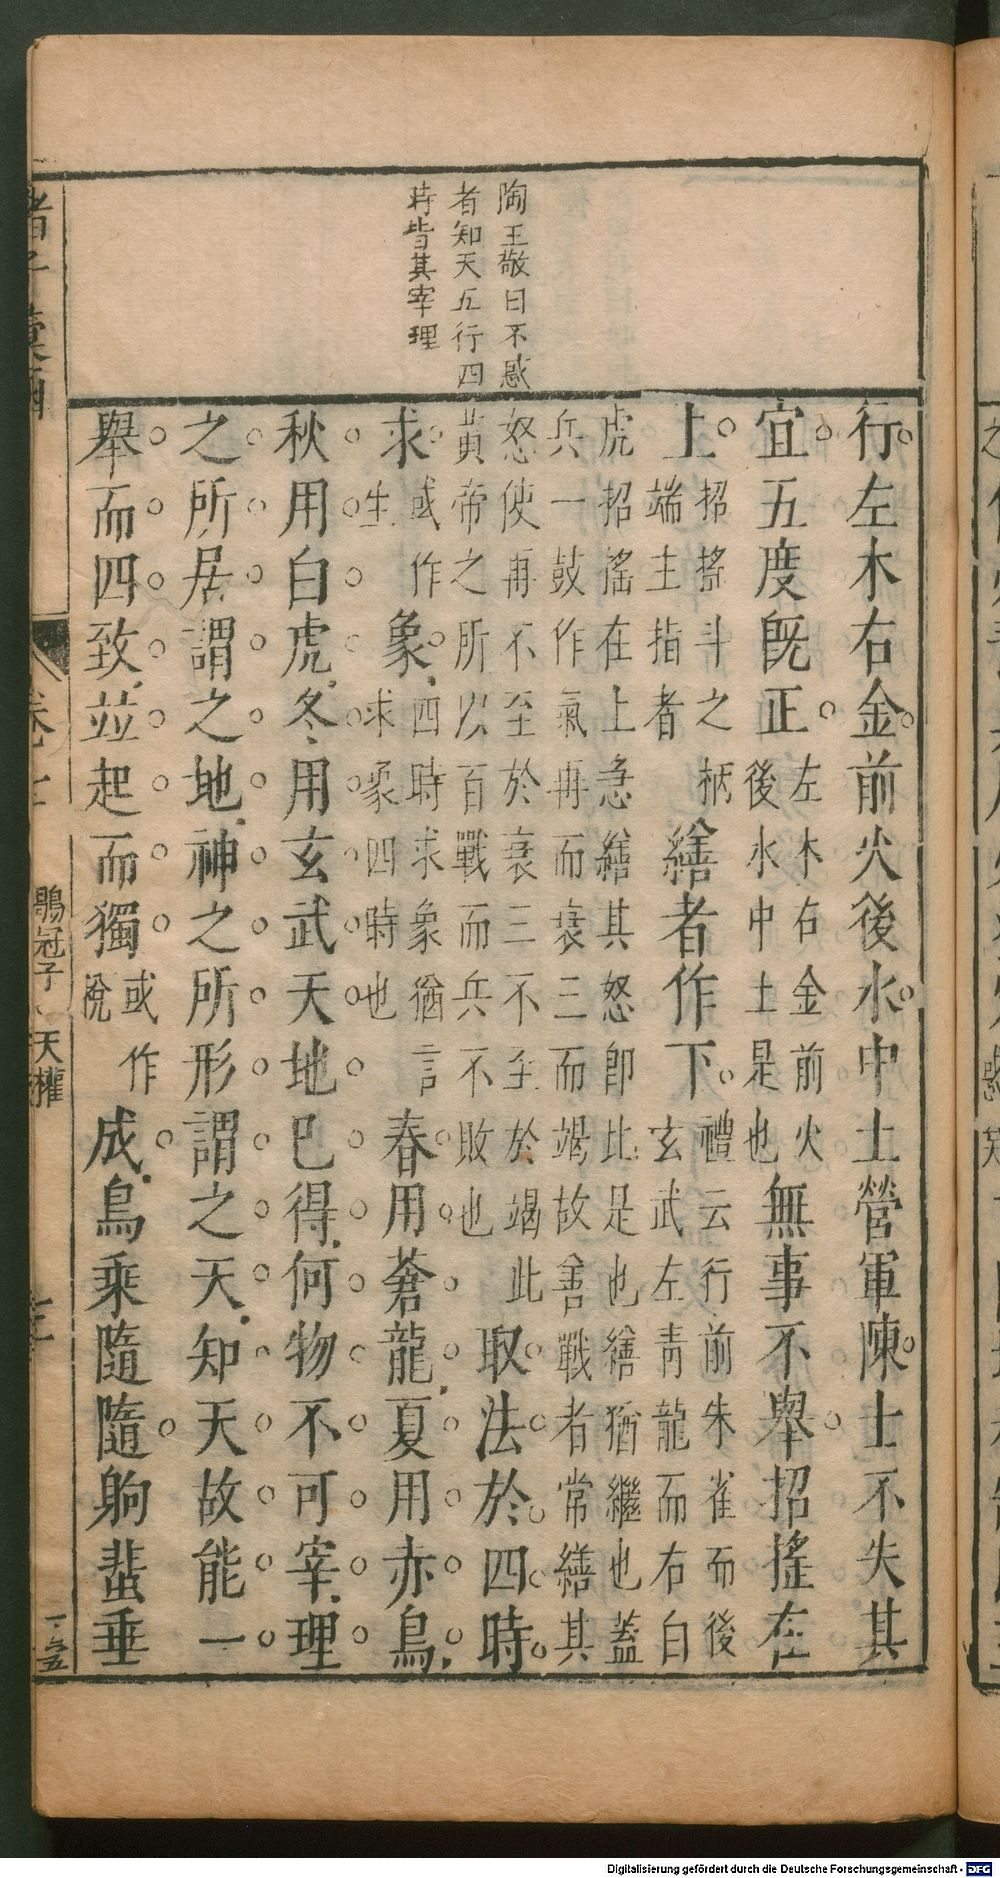 陶王敬曰不惑
者知天五行四
時皆其宰理
行左木右金前火後水中土營軍陳士不失其
宜五度旣正左木右金前火後水中土是也無事不舉招搖在
上招搖斗之柄端主指者繕者作下禮云行前朱雀而後玄武左青龍而右白
虎招搖在上急繕其怒即比是也繕猶繼也蓋
兵一鼓作氣再而衰三而竭故善戰者常繕其
怒使再不至於衰三不至於竭此
黃帝之所以百戰而兵不敗也取法於四時
求或作生象四時求象猶言求象四時也春用蒼龍夏用赤鳥
秋用白虎冬用玄武天地已得何物不可宰理
之所居謂之地神之所形謂之天知天故能一
舉而四致並起而獨或作稅成鳥乘隨隨駒蜚垂
鶡冠子 天權
Digitalisierung gefördert durch die Deutsche Forschungsgemeinschaft - DFG